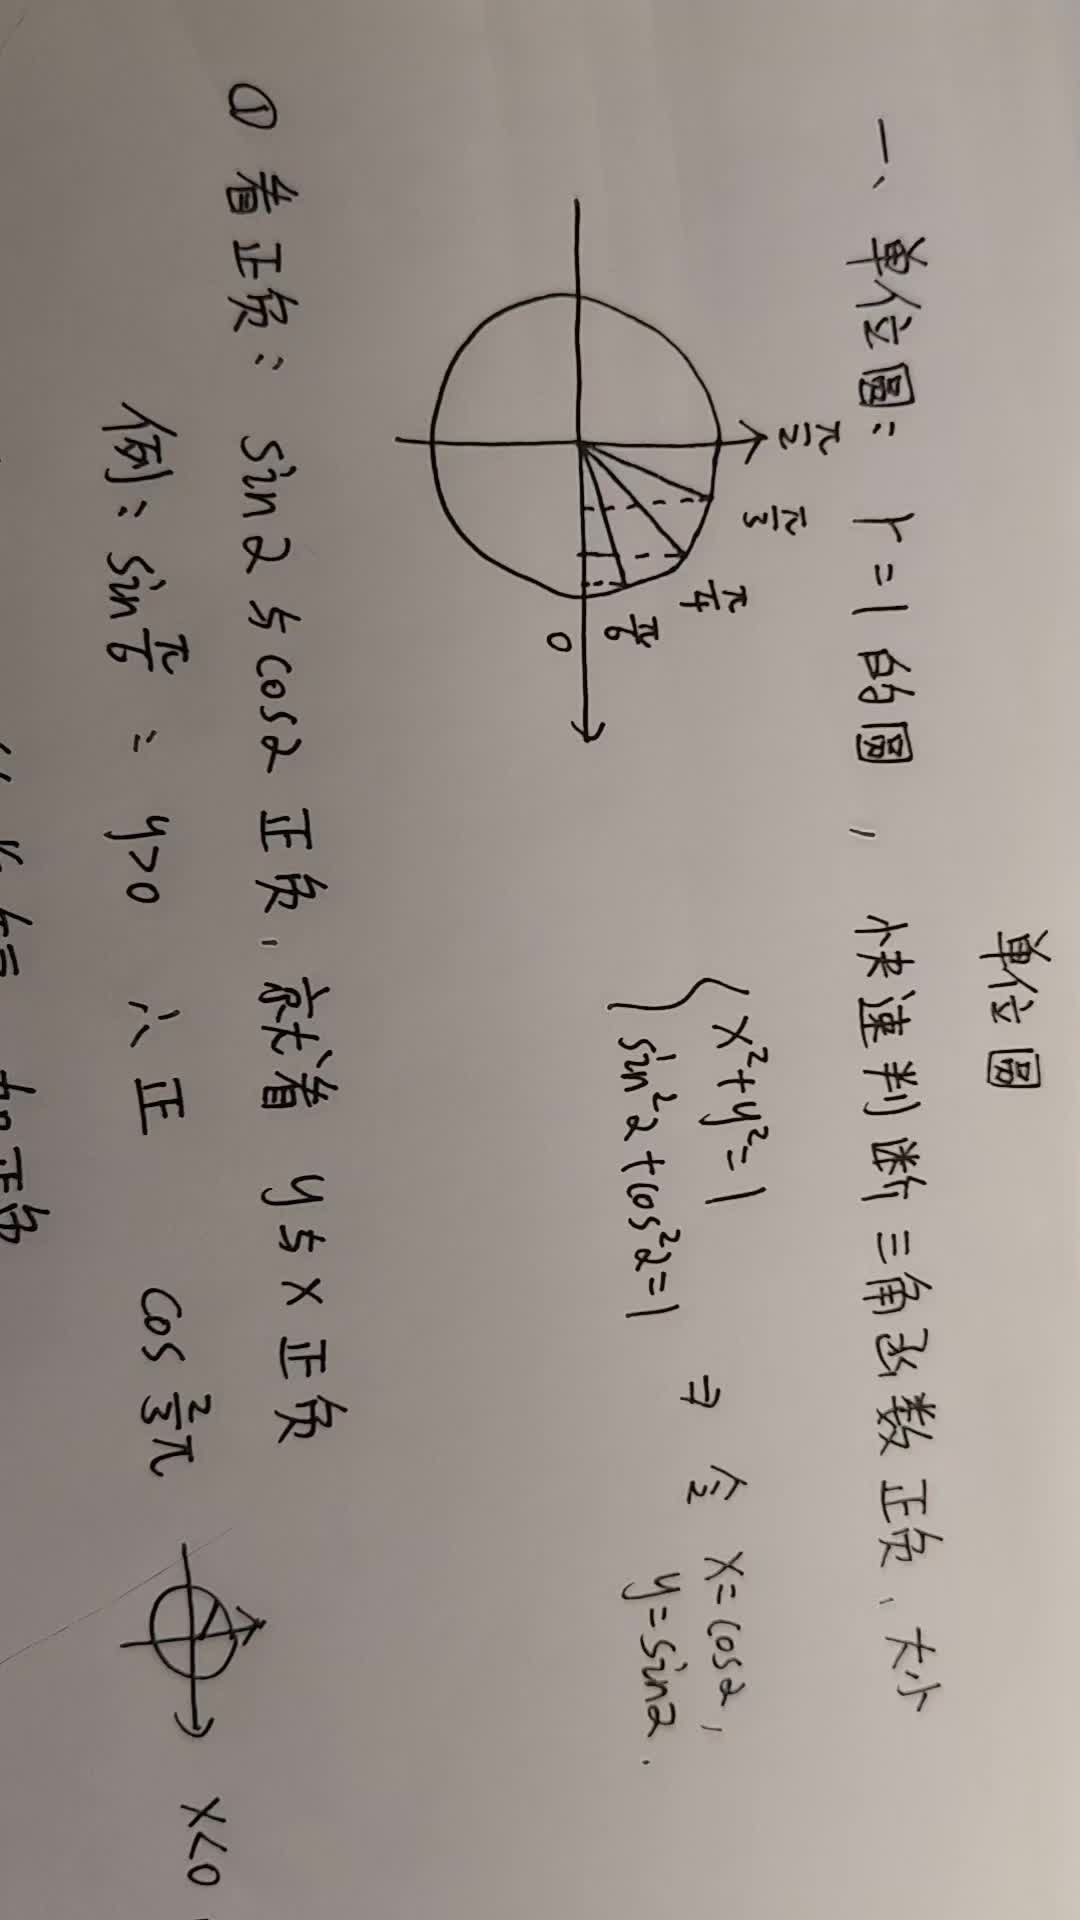 单位圆
一、单位圆： r=1的圆 ， 快速判断三角函数正负、大小
π/2
π/3
π/4
π/6
0
{ x²+y²=1
sin²α+cos²α=1
⇒ 令 x=cosα，
y=sinα．
① 看正负： sinα与cosα 正负，就看 y与x正负
例： sin π/6 ： y>0 ∴正 cos 2/3 π x<0